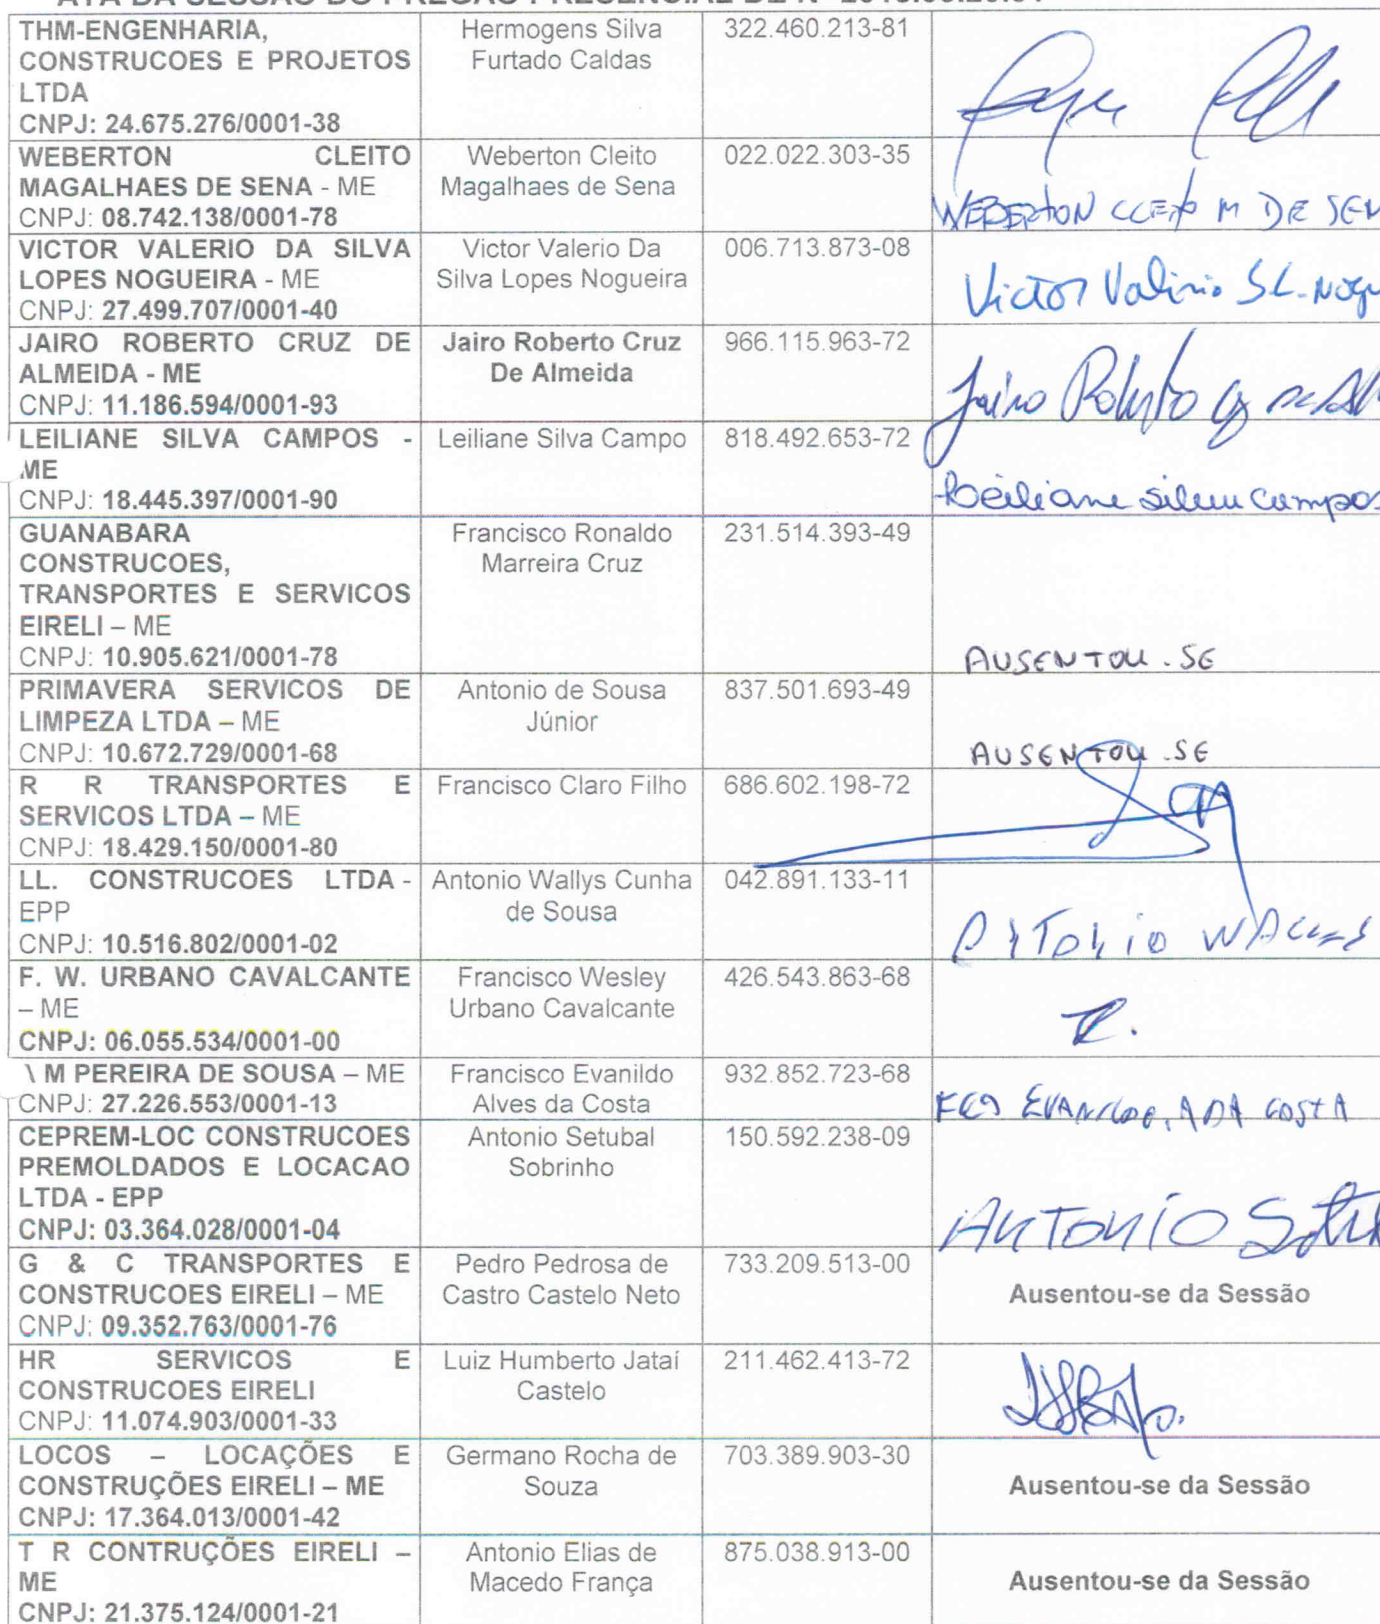 THM-ENGENHARIA,
CONSTRUCOES E PROJETOS
LTDA
CNPJ: 24.675.276/0001-38
Hermogens Silva
Furtado Caldas
322.460.213-81
WEBERTON CLEITO
MAGALHAES DE SENA - ME
CNPJ: 08.742.138/0001-78
Weberton Cleito
Magalhaes de Sena
022.022.303-35
WEBERTON CLEITO M DE SEN
VICTOR VALERIO DA SILVA
LOPES NOGUEIRA - ME
CNPJ: 27.499.707/0001-40
Victor Valerio Da
Silva Lopes Nogueira
006.713.873-08
Victor Valerio SL-Nogu
JAIRO ROBERTO CRUZ DE
ALMEIDA - ME
CNPJ: 11.186.594/0001-93
Jairo Roberto Cruz
De Almeida
966.115.963-72
Jairo Roberto
LEILIANE SILVA CAMPOS -
ME
CNPJ: 18.445.397/0001-90
Leiliane Silva Campo
818.492.653-72
Leiliane Silva Campos
GUANABARA
CONSTRUCOES,
TRANSPORTES E SERVICOS
EIRELI – ME
CNPJ: 10.905.621/0001-78
Francisco Ronaldo
Marreira Cruz
231.514.393-49
AUSENTOU-SE
PRIMAVERA SERVICOS DE
LIMPEZA LTDA – ME
CNPJ: 10.672.729/0001-68
Antonio de Sousa
Júnior
837.501.693-49
AUSENTOU-SE
R R TRANSPORTES E
SERVICOS LTDA – ME
CNPJ: 18.429.150/0001-80
Francisco Claro Filho
686.602.198-72
LL. CONSTRUCOES LTDA -
EPP
CNPJ: 10.516.802/0001-02
Antonio Wallys Cunha
de Sousa
042.891.133-11
ANTONIO WALLYS
F. W. URBANO CAVALCANTE
– ME
CNPJ: 06.055.534/0001-00
Francisco Wesley
Urbano Cavalcante
426.543.863-68
M PEREIRA DE SOUSA – ME
CNPJ: 27.226.553/0001-13
Francisco Evanildo
Alves da Costa
932.852.723-68
FCO EVANILDO, A DA COSTA
CEPREM-LOC CONSTRUCOES
PREMOLDADOS E LOCACAO
LTDA - EPP
CNPJ: 03.364.028/0001-04
Antonio Setubal
Sobrinho
150.592.238-09
ANTONIO
G & C TRANSPORTES E
CONSTRUCOES EIRELI – ME
CNPJ: 09.352.763/0001-76
Pedro Pedrosa de
Castro Castelo Neto
733.209.513-00
Ausentou-se da Sessão
HR SERVICOS E
CONSTRUCOES EIRELI
CNPJ: 11.074.903/0001-33
Luiz Humberto Jataí
Castelo
211.462.413-72
LOCOS – LOCAÇÕES E
CONSTRUÇÕES EIRELI – ME
CNPJ: 17.364.013/0001-42
Germano Rocha de
Souza
703.389.903-30
Ausentou-se da Sessão
T R CONTRUÇÕES EIRELI –
ME
CNPJ: 21.375.124/0001-21
Antonio Elias de
Macedo França
875.038.913-00
Ausentou-se da Sessão